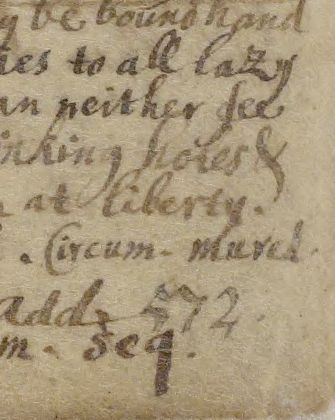 be bound hand
to all lazy
neither see
holes &
at liberty.
. Circum-mured.
add 572.
seq.